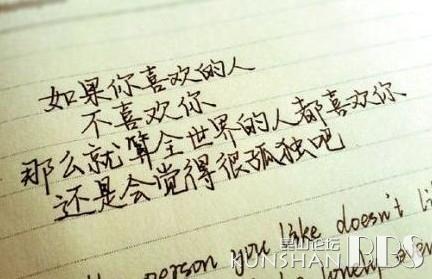 如果你喜欢的人
不喜欢你
那么就算全世界的人都喜欢你
还是会觉得很孤独吧
person you like doesn't li
lonely even
昆山论坛
KUNSHAN BBS